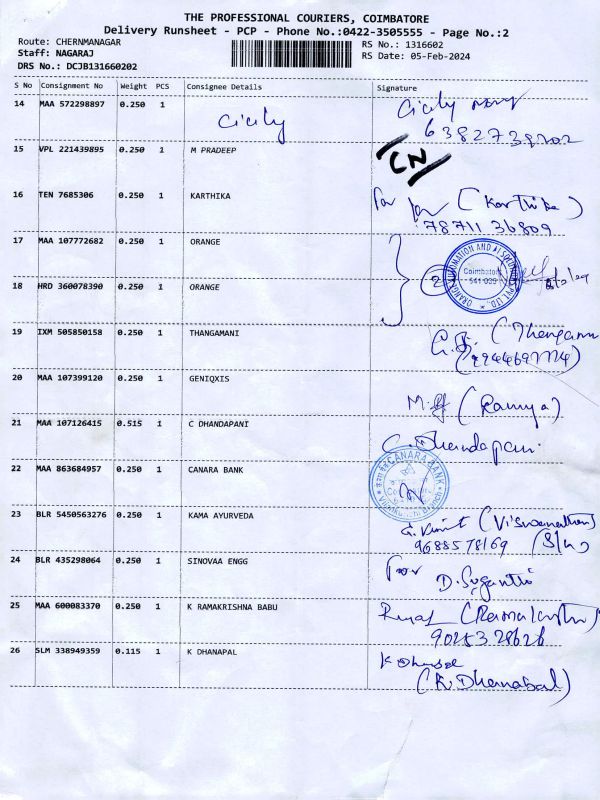 THE PROFESSIONAL COURIERS, COIMBATORE
Delivery Runsheet - PCP - Phone No.:0422-3505555 - Page No.:2
Route: CHERNMANAGAR
RS No.: 1316602
Staff: NAGARAJ
RS Date: 05-Feb-2024
DRS No.: DCJB131660202
S No Consignment No Weight PCS Consignee Details Signature
14 MAA 572298897 0.250 1 Cicily Cicily
15 VPL 221439895 0.250 1 M PRADEEP CN
16 TEN 7685306 0.250 1 KARTHIKA For (Karthika)
78711 36809
17 MAA 107772682 0.250 1 ORANGE
18 HRD 360078390 0.250 1 ORANGE 2
ORANGE AUTOMATION AND PVT LTD.
Coimbatore
641 035
19 IXM 505850158 0.250 1 THANGAMANI
20 MAA 107399120 0.250 1 GENIQXIS (Ramya)
21 MAA 107126415 0.515 1 C DHANDAPANI C. Dhandapani
22 MAA 863684957 0.250 1 CANARA BANK
CANARA BANK
23 BLR 5450563276 0.250 1 KAMA AYURVEDA (Viswanathan)
9688578169 (S/w)
24 BLR 435298064 0.250 1 SINOVAA ENGG For
D. Suganthi
25 MAA 600083370 0.250 1 K RAMAKRISHNA BABU
90253 28626
26 SLM 338949359 0.115 1 K DHANAPAL
(K. Dhanabal)